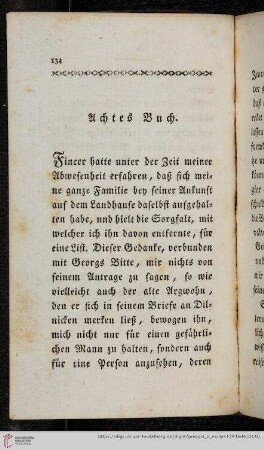 134
Achtes Buch.
Fincer hatte unter der Zeit meiner
Abwesenheit erfahren, daß sich mei-
ne ganze Familie bey seiner Ankunft
auf dem Landhause daselbst aufgehal-
ten habe, und hielt die Sorgfalt, mit
welcher ich ihn davon entfernte, für
eine List. Dieser Gedanke, verbunden
mit Georgs Bitte, mir nichts von
seinem Antrage zu sagen, so wie
vielleicht auch der alte Argwohn,
den er sich in seinem Briefe an Dil-
nicken merken ließ, bewogen ihn,
mich nicht nur für einen gefährli-
chen Mann zu halten, sondern auch
für eine Person anzusehen, deren